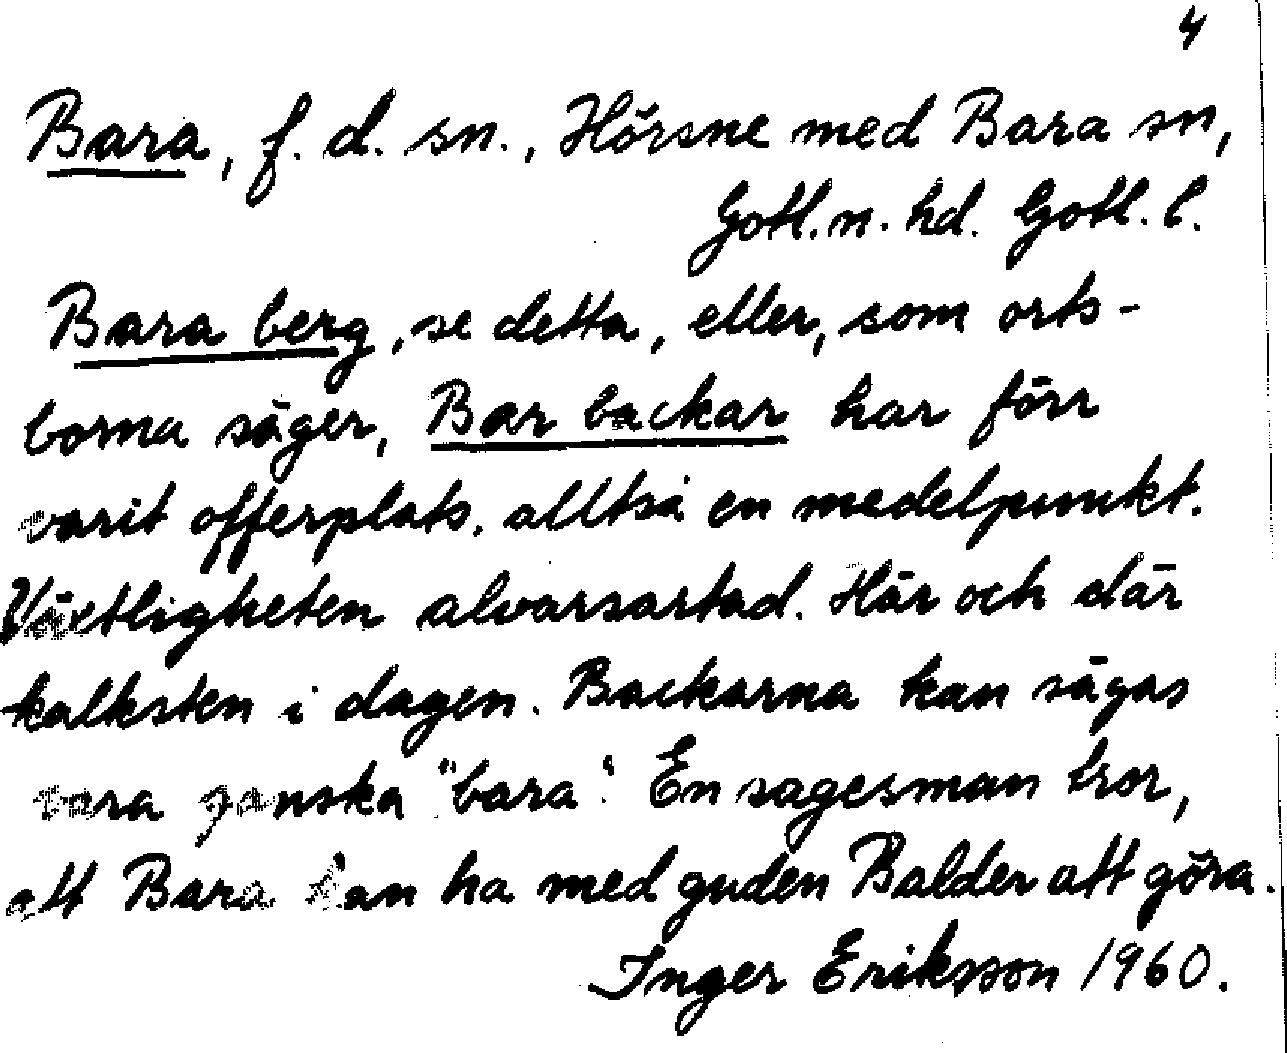 4
Bara, f. d. sn., Hörsne med Bara sn,
Gotl. n. hd. Gotl. l.
Bara berg, se detta, eller, som orts-
borna säger, Bar backar har förr
varit offerplats, alltså en medelpunkt.
Växtligheten alvarsartad. Här och där
kalksten i dagen. Backarna kan sägas
vara ganska "bara". En sagesman tror,
att Bara kan ha med guden Balder att göra.
Inger Eriksson 1960.